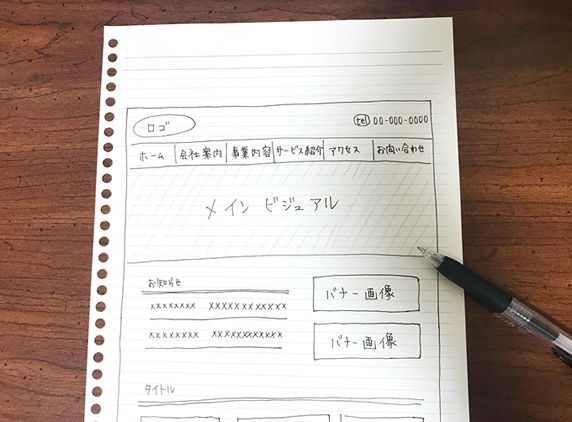 ロゴ tel 00-000-0000
ホーム 会社案内 事業内容 サービス紹介 アクセス お問い合わせ
メインビジュアル
お知らせ
xxxxxxxx xxxxxxxxxxxx
xxxxxxxx xxxxxxxxxxxx
バナー画像
バナー画像
タイトル